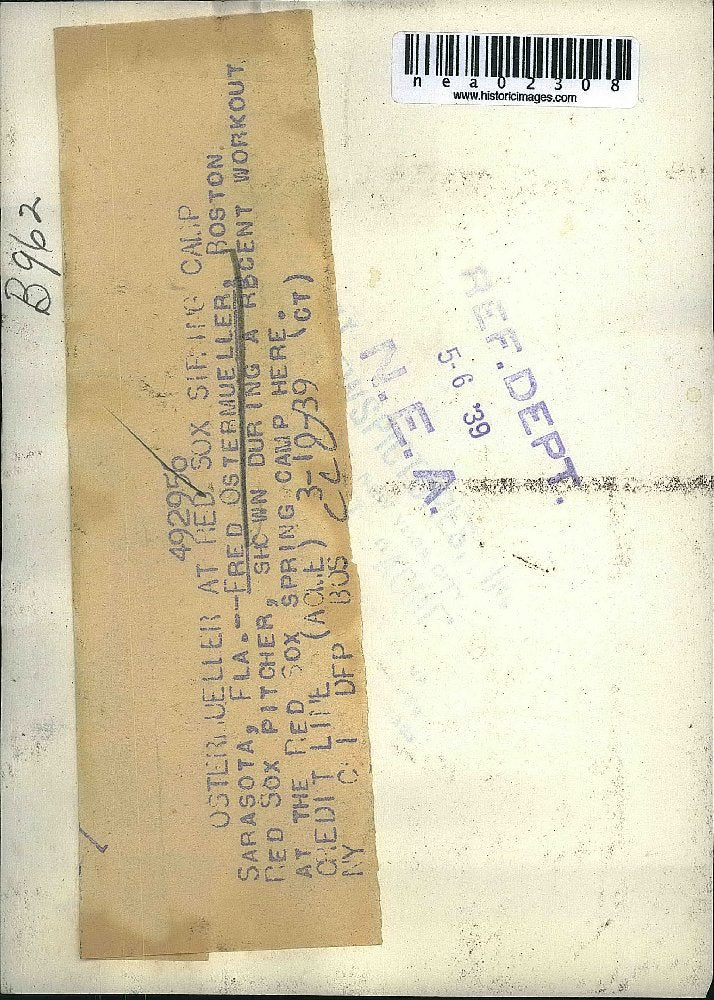 nea02308
www.historicimages.com
B962
492956
OSTERMUELLER AT RED SOX SPRING CAMP
SARASOTA, FLA.--FRED OSTERMUELLER, BOSTON
RED SOX PITCHER, SHOWN DURING A RECENT WORKOUT
AT THE RED SOX SPRING CAMP HERE.
CREDIT LINE (ACME) 3-10-39 (CT)
NY CHI DFP BUS
REF. DEPT.
5-6 '39
N.E.A.